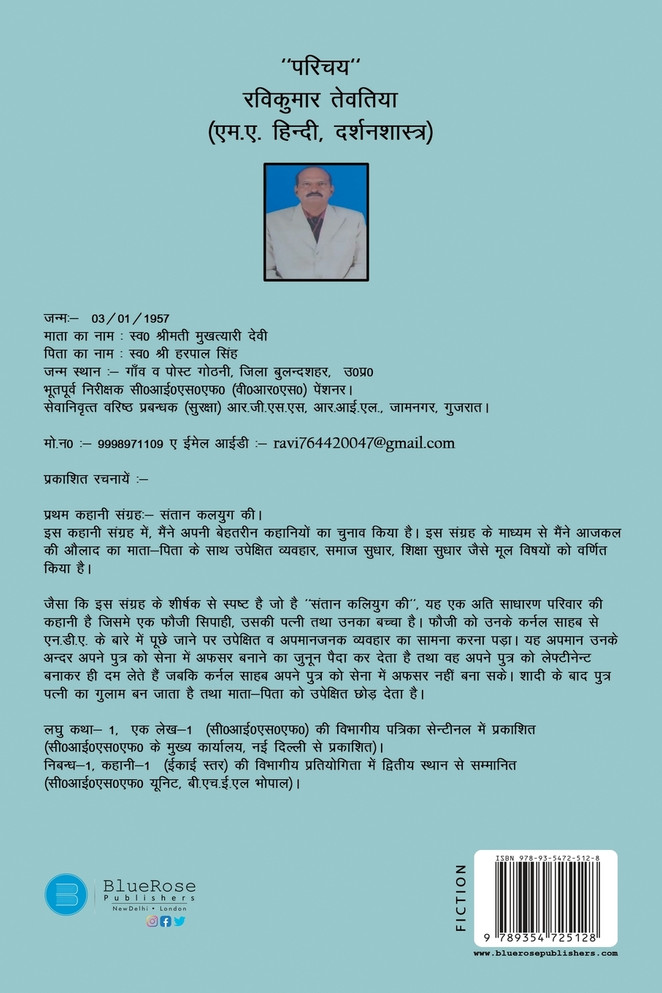 “परिचय“
रविकुमार तेवतिया
(एम.ए. हिन्दी, दर्शनशास्त्र)
जन्मः– 03/01/1957
माता का नाम : स्व0 श्रीमती मुखत्यारी देवी
पिता का नाम : स्व0 श्री हरपाल सिंह
जन्म स्थान :– गाँव व पोस्ट गोठनी, जिला बुलन्दशहर, उ0प्र0
भूतपूर्व निरीक्षक सी0आई0एस0एफ0 (वी0आर0एस0) पेंशनर।
सेवानिवृत्त वरिष्ठ प्रबन्धक (सुरक्षा) आर.जी.एस.एस, आर.आई.एल., जामनगर, गुजरात।
मो.न0 :– 9998971109 ए ईमेल आईडी :– ravi764420047@gmail.com
प्रकाशित रचनायें :–
प्रथम कहानी संग्रहः– संतान कलयुग की।
इस कहानी संग्रह में, मैंने अपनी बेहतरीन कहानियों का चुनाव किया है। इस संग्रह के माध्यम से मैंने आजकल
की औलाद का माता–पिता के साथ उपेक्षित व्यवहार, समाज सुधार, शिक्षा सुधार जैसे मूल विषयों को वर्णित
किया है।
जैसा कि इस संग्रह के शीर्षक से स्पष्ट है जो है “संतान कलियुग की“, यह एक अति साधारण परिवार की
कहानी है जिसमे एक फौजी सिपाही, उसकी पत्नी तथा उनका बच्चा है। फौजी को उनके कर्नल साहब से
एन.डी.ए. के बारे में पूछे जाने पर उपेक्षित व अपमानजनक व्यवहार का सामना करना पड़ा। यह अपमान उनके
अन्दर अपने पुत्र को सेना में अफसर बनाने का जुनून पैदा कर देता है तथा वह अपने पुत्र को लेफ्टीनेन्ट
बनाकर ही दम लेते हैं जबकि कर्नल साहब अपने पुत्र को सेना में अफसर नहीं बना सके। शादी के बाद पुत्र
पत्नी का गुलाम बन जाता है तथा माता–पिता को उपेक्षित छोड़ देता है।
लघु कथा– 1, एक लेख–1 (सी0आई0एस0एफ0) की विभागीय पत्रिका सेन्टीनल में प्रकाशित
(सी0आई0एस0एफ0 के मुख्य कार्यालय, नई दिल्ली से प्रकाशित)।
निबन्ध–1, कहानी–1 (ईकाई स्तर) की विभागीय प्रतियोगिता में द्वितीय स्थान से सम्मानित
(सी0आई0एस0एफ0 यूनिट, बी.एच.ई.एल भोपाल)।
BlueRose
Publishers
NewDelhi • London
FICTION
ISBN 978-93-5472-512-8
9 789354 725128
www.bluerosepublishers.com